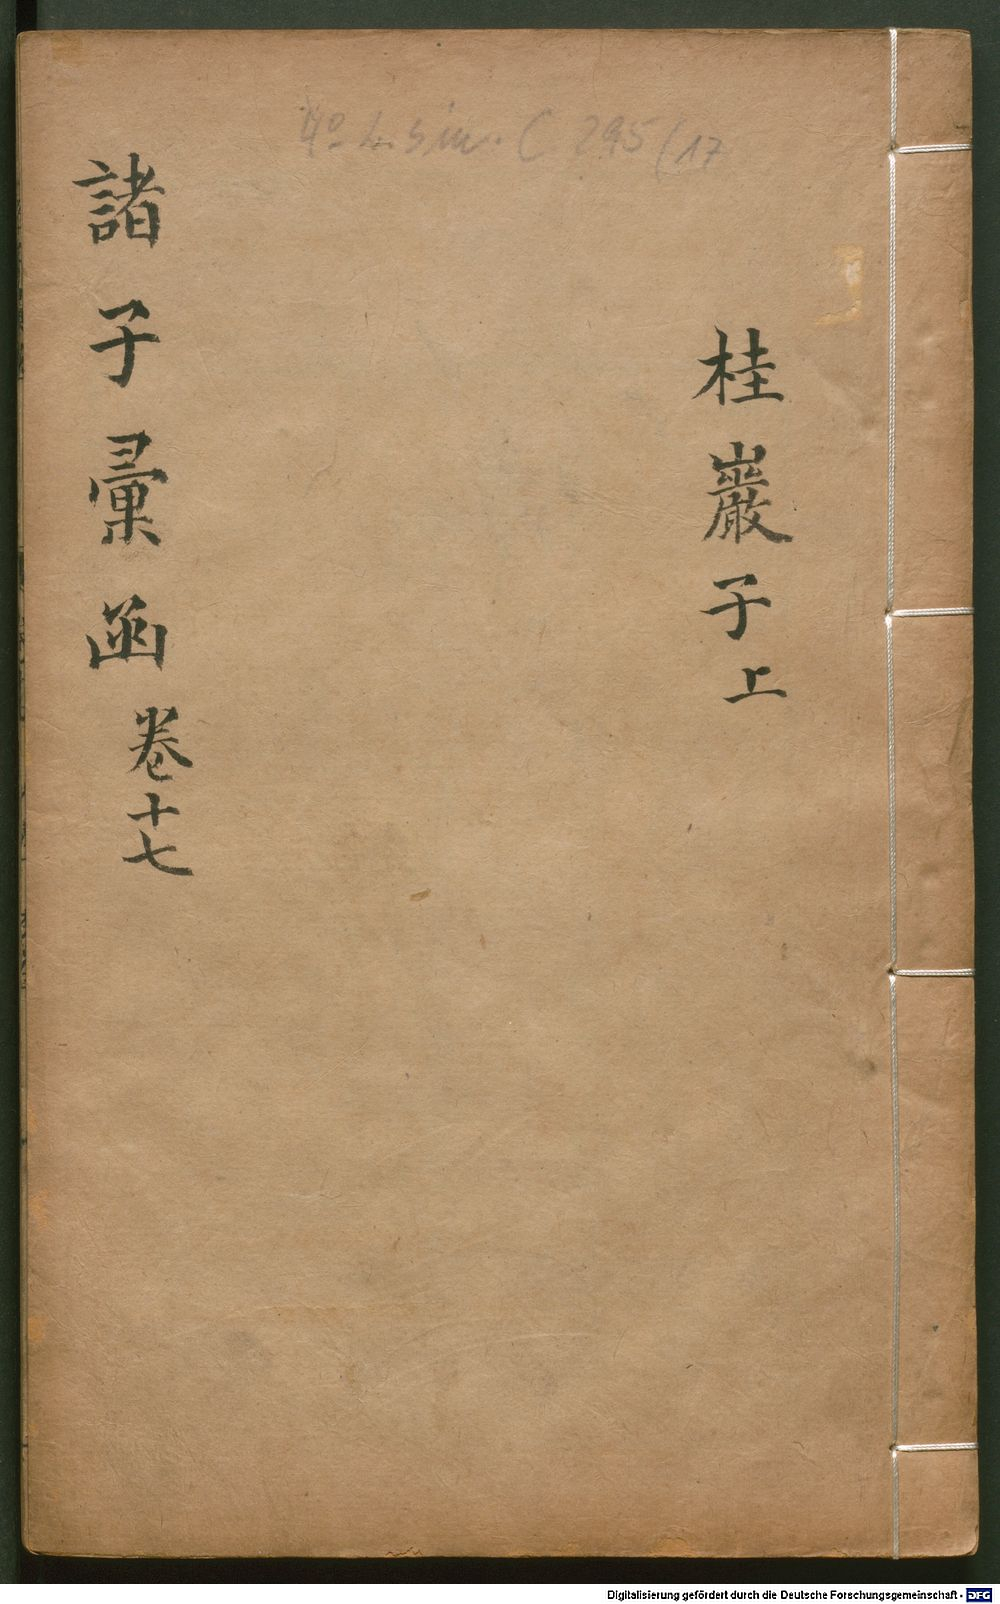 4° L. sin. C 295 (17
桂巖子上
諸子彙函卷十七
Digitalisierung gefördert durch die Deutsche Forschungsgemeinschaft - DFG